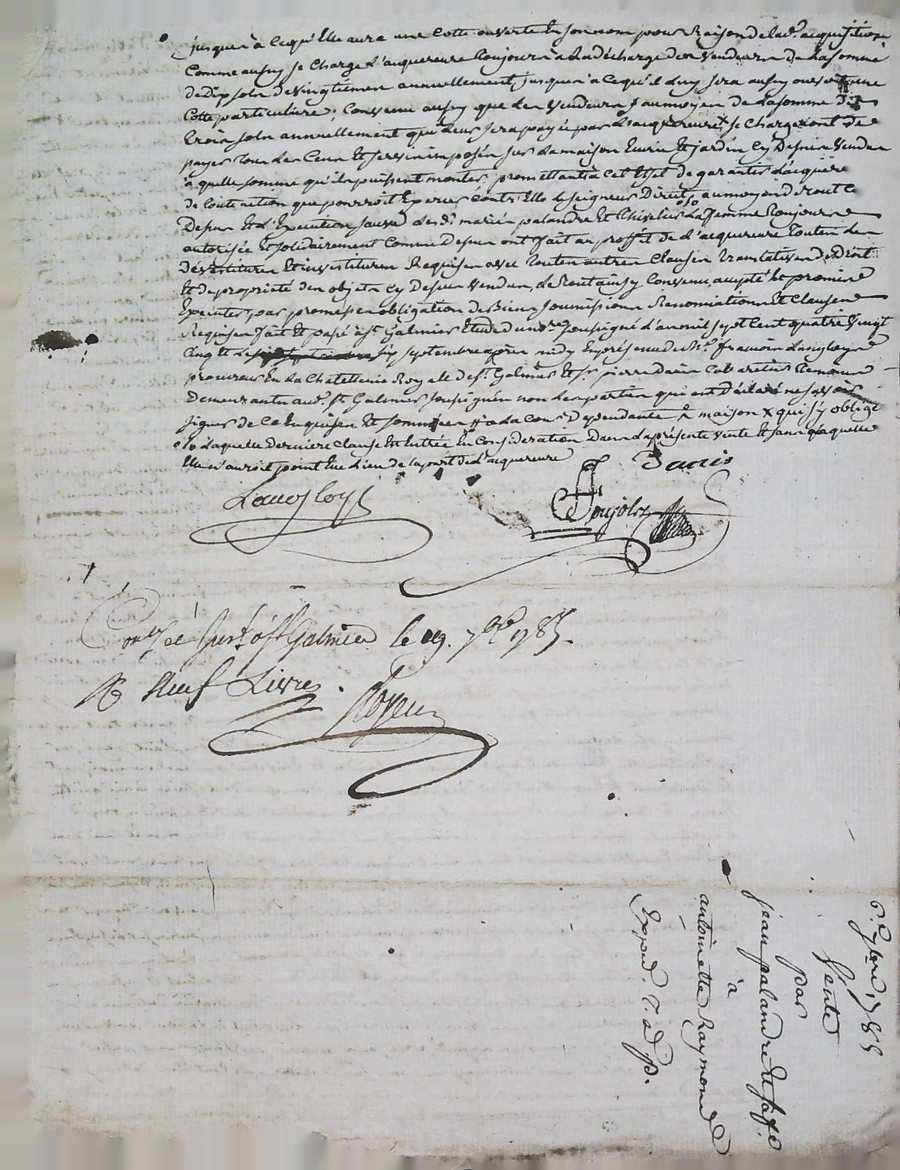 jusqu'à cequ'Elle aura une Cotte ouverte En son nom pour Raison de lad. acquisition
Comme aussy se Charge l'acquereure Toujours à La décharge des Vendeurs de La somme
de Dix sols de vingtiemes annuellement, jusques à Cequ'il luy sera aussy ouvert une
Cotte particuliere; Convenu aussy que les Vendeurs aumoyen de La somme de
trois sols annuellement qui leur sera payée par L'acquereure, se Chargeront de
payer tous les Cens Et servis imposés sur La maison Ecurie Et jardin Cy Dessus Vendus
à quelle somme qu'ils puissent monter promettants à Cet Effet de garantir L'acquereure
de toute action que pourroit Exercer Contr' Elle Le seigneur Direct, aumoyen de tout Ce
Dessus Et d'Execution lesd. mariés palandre Et La femme Toujours
autorisée Et solidairement Comme Dessus ont fait au proffit de L'acquereure toutes Les
dévêtitures Et investitures Requises avec toutes autres Clauses translatives de Droit
Et de proprieté des objets Cy Dessus Vendus, Le tout ainsy Convenu, accepté Et promis
par promesses obligation de Biens soumissions Renonciations Et Clauses
Requises fait Et passé à St. Galmier Etude du nre. soussigné L'an mil sept cent quatre vingt
Cinq Le six septembre après midy En présence de Me. francois Langloys
procureur En La Chatellenie Royalle de St. Galmier Et Sr. pierre Cabaretier
Demeurants aud. St. Galmier soussignés non Les parties qui ont déclaré ne savoir
signer de Ce Enquises Et sommées La Cour Dependante maison x qui s'y oblige
o/o Laquelle Derniere Clause Est Entrée En Consideration Dans La présente vente Et sans Laquelle
Elle n'auroit point Eu Lieu de la part de L'acquereure
Langloys
Ponjolz
Conlé à St Galmier le 19. 7bre 1785.
R neuf Livres.
Royer
6. 7bre. 1785
Vente
par
jean palandre Et sa fe.
à
antoinette Raymond
Exped.